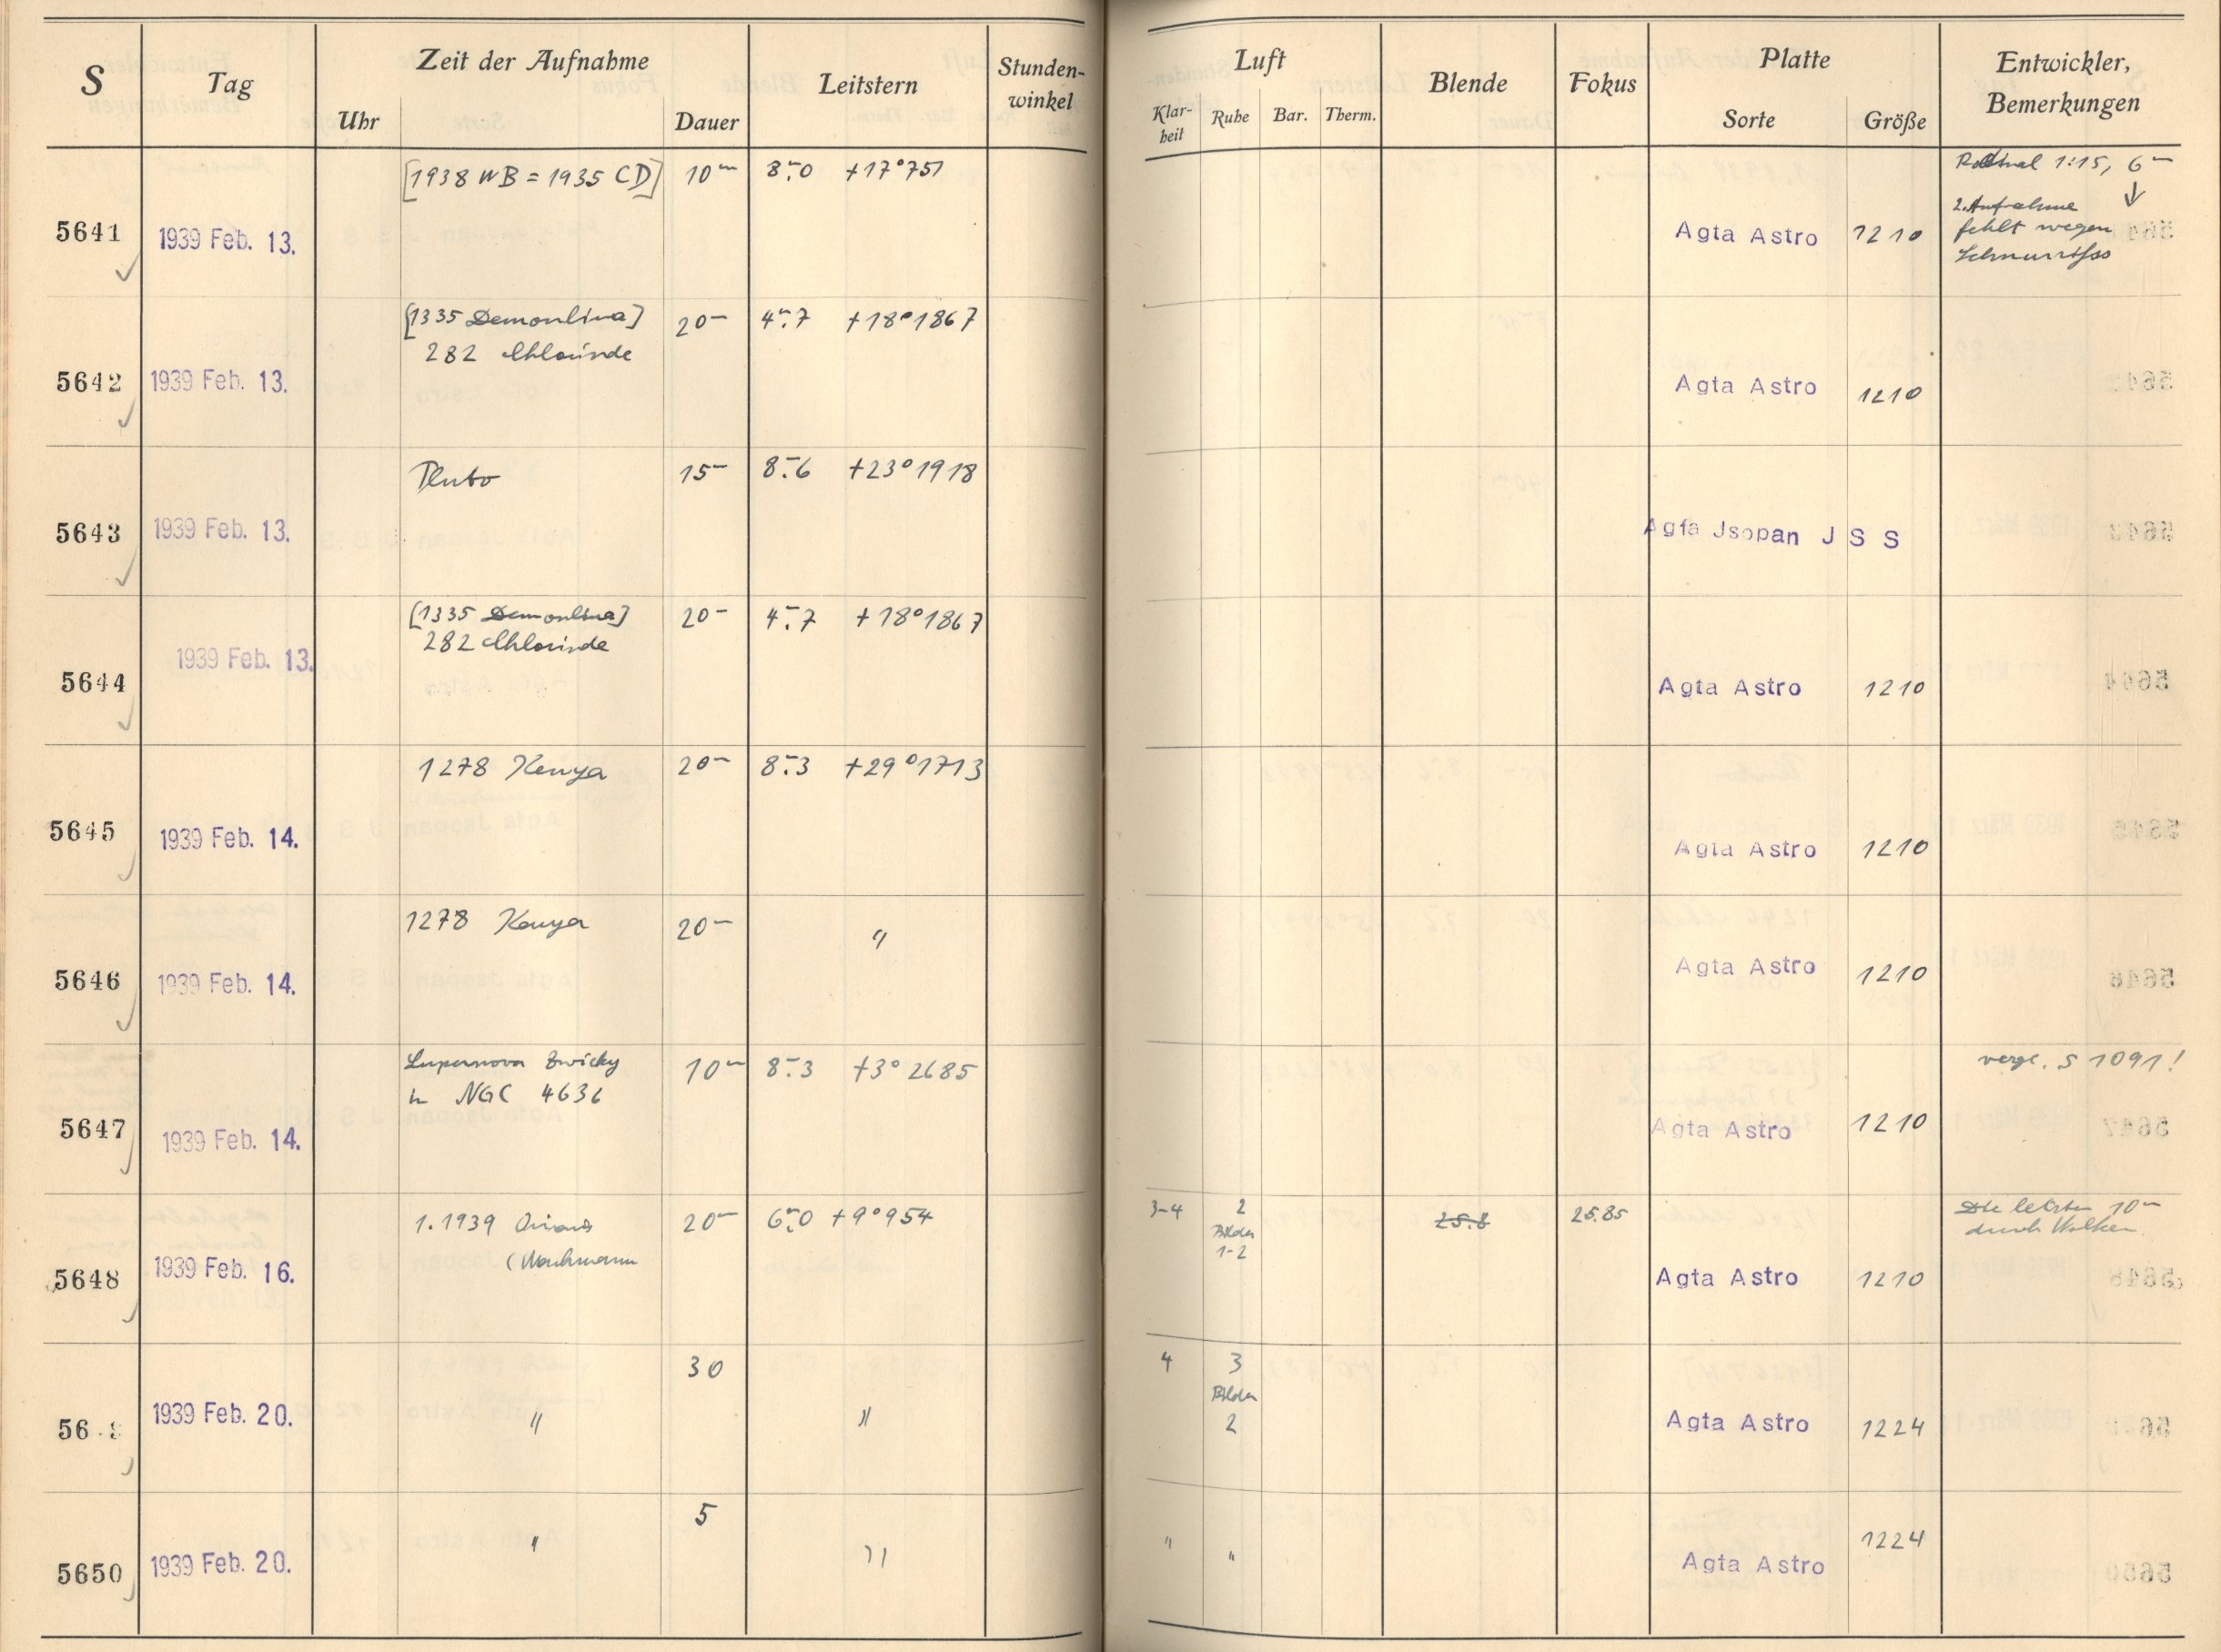 S Tag Zeit der Aufnahme Leitstern Stunden-winkel Luft Blende Fokus Platte Entwickler, Bemerkungen
Uhr Dauer Klar-heit Ruhe Bar. Therm. Sorte Größe
[1938 WB = 1935 CD] 10m 8m.0 +17°751 1:15, 6m
↓
2. Aufnahme
5641 1939 Feb. 13. Agfa Astro 1210 fehlt wegen
[1335 Demoulina] 20m 4m.7 +18°1867
282 Chlorinde
5642 1939 Feb. 13. Agfa Astro 1210
Pluto 15m 8m.6 +23°1918
5643 1939 Feb. 13. Agfa Jsopan J S S
[1335 Demoulina] 20m 4m.7 +18°1867
282 Chlorinde
5644 1939 Feb. 13. Agfa Astro 1210
1278 Kenya 20m 8m.3 +29°1713
5645 1939 Feb. 14. Agfa Astro 1210
1278 Kenya 20m "
5646 1939 Feb. 14. Agfa Astro 1210
Supernova Zwicky 10m 8m.3 +3°2685 vergl. S 1091!
in NGC 4636
5647 1939 Feb. 14. Agfa Astro 1210
1.1939 Orionis 20m 6m.0 +9°954 3-4 2 25.8 25.85 Die letzten 10m
(Wachmann Bilder 1-2 durch Wolken.
5648 1939 Feb. 16. Agfa Astro 1210
30 4 3
Bilder
1939 Feb. 20. " " 2 Agfa Astro 1224
5
5650 1939 Feb. 20. " " " " Agfa Astro 1224